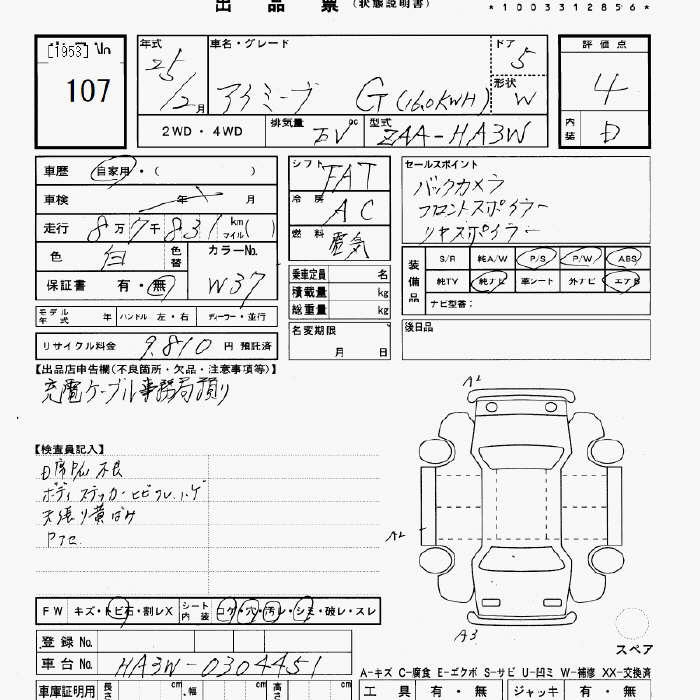 出品票（状態説明書）
*1003312856*
[1953]
107
年式 25/2月
車名・グレード アイミーブ G (16.0KWH)
ドア 5
形状 W
評価点 4
内装 D
2WD・4WD
排気量 EV cc
型式 ZAA-HA3W
車歴 自家用・（ ）
車検 年 月
走行 8万7千831 km マイル( )
色 白 色替
カラーNo. W37
保証書 有・無
シフト FAT
冷房 AC
燃料 電気
セールスポイント
バックカメラ
フロントスポイラー
リヤスポイラー
装備品
S/R 純A/W P/S P/W ABS
純TV 純ナビ 車シート 外ナビ エアB
ナビ型番：
乗車定員 名
積載量 kg
総重量 kg
モデル年式 年 ハンドル 左・右 ディーラー・並行
名変期限 月 日
後日品
リサイクル料金 9,810 円 預託済
【出品店申告欄(不良箇所・欠品・注意事項等)】
充電ケーブル事務局預り
【検査員記入】
ボディステッカーヒビワレ、ハゲ
天張り黄ばみ
A2
A2
A3
スペア
FW キズ・トビ石・割レX
シート内装 コゲ・穴・汚レ・シミ・破レ・スレ
登録No.
車台No. HA3W-0304451
A-キズ C-腐食 E-エクボ S-サビ U-凹ミ W-補修 XX-交換済
車庫証明用 長さ cm 幅 cm 高さ cm
工具 有・無 ジャッキ 有・無